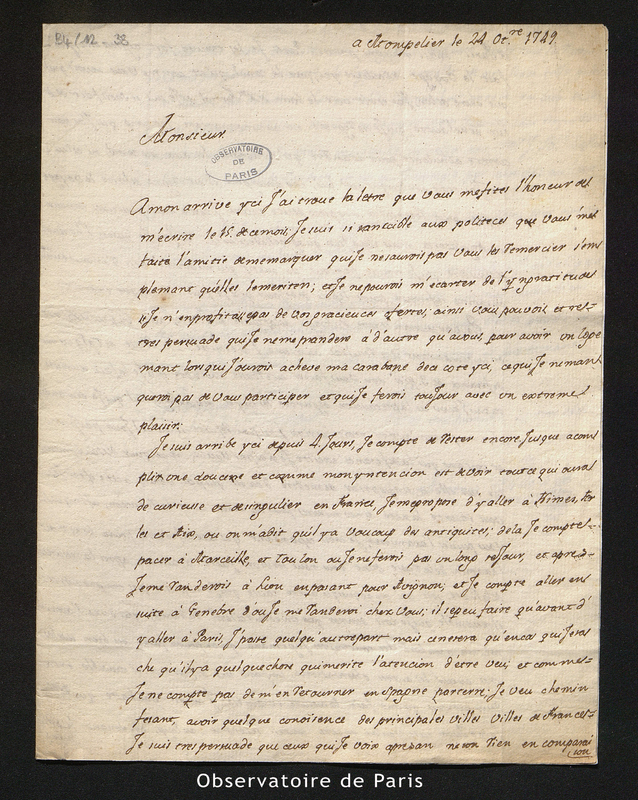 B4/12 - 38
a Monpelier le 24 Oc.re 1749
Monsieur
OBSERVATOIRE
DE
PARIS
A mon arrive yci J'ai trouve la letre que vous me fites l'honeur de
m'ecrire le 16. de ce mois; Je suis si sansible aux politeces que vous m'et
faite l'amitie de me marquer qui Je ne saurois pas vous les remercier sem
plemant quilles le meriten; et Je ne pourois m'ecarter de l'yngratitude
si Je n'en profitasse pas de vos gracieuces ofertes; ainsi vous pouvois etre
tres persuade qui Je ne me prandere à d'autre qu'a vous, pour avoir un loge
mant lors qui J'aurois acheve ma carabane de ce cote yci, ce qui Je ne man
queroi pas de vous participer et qui Je ferois touJour avec un extreme
plaisir.
Je suis arribe yci depuis 4. Jours, Je compte de rester encore Jusque a com
plir une doucene et comme mon yntencion est de voir tout ce qui aura
de curieusse et de singulier en France, Je me propose d'y aller à Nimes, Ar
les et Aix, ou on m'a dit qu'il y a voucoup des antiquites; de la Je compte
pacer à Marceille, et Toulon ou Je ne ferois pas un long seJour, et apres
Je me randerois à Lion en pasant pour Avignon; et Je compte aller en
suite à Genebre d'ou Je me randeroi chez vous; il se peu faire qu'avant d'
y aller à Paris, J'pase quelqu'autre part mais ce ne sera qu'en cas qui Je sa
che qu'il y a quelque chose qui merite l'atencion d'être veu; et comme
Je ne compte pas de m'en retourner en Espagne par terre: Je veu chemin
fesant, avoir quelque conoisence des principales villes villes de France
Je suis tres persuade que ceux qui Je voix apresan ne son rien en comparai
son
Observatoire de Paris